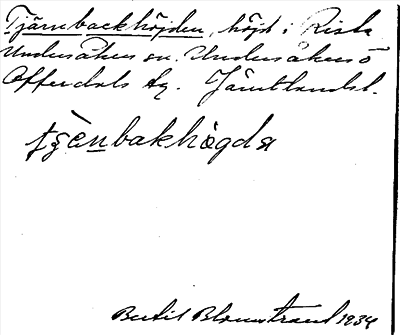 Tjärnbackhöjden, höjd i Rista
Undersåkers sn. Undersåkers o
Offerdals tg. Jämtlandsl.
tʂænbakhøgda
Bertil Blomstrand 1934